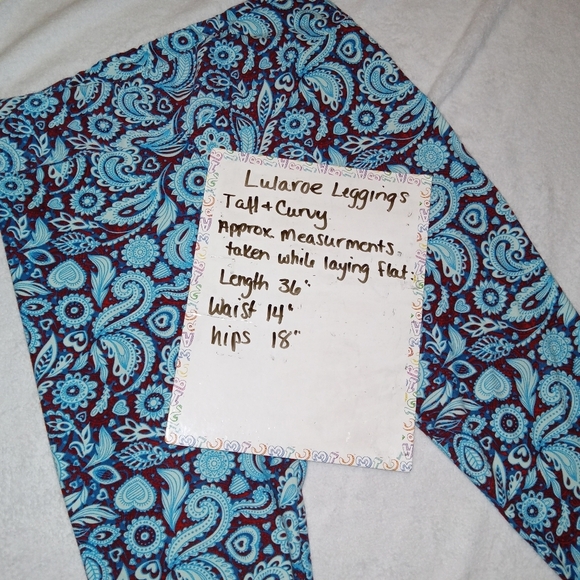 Lularoe Leggings
Tall + Curvy
Approx Measurments
taken while laying flat.
Length 36"
Waist 14"
hips 18"